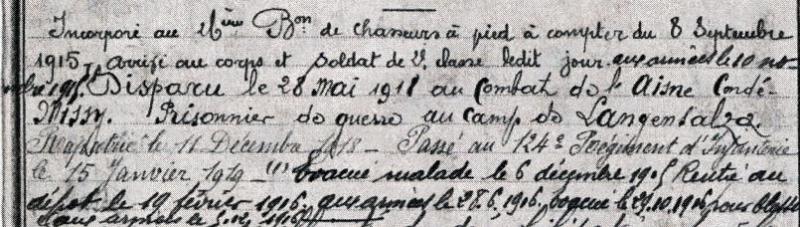 Incorporé au 26ème Bon de chasseurs à pied à compter du 8 Septembre
1915 - arrivé au corps et soldat de 2e classe ledit jour. aux armées le 10 no-
vembre 1915. Disparu le 28 mai 1918 au Combat de l'Aisne Condé-
Missy. Prisonnier de guerre au camp de Langensalza.
Rapatrié le 11 Décembre 1918 - Passé au 124e Régiment d'Infanterie
le 15 Janvier 1919 - (1) Evacué malade le 6 décembre 1915 Rentré au
dépôt le 19 février 1916. aux armées le 28.6.1916. évacué le 27.10.1916 pour
aux armées le